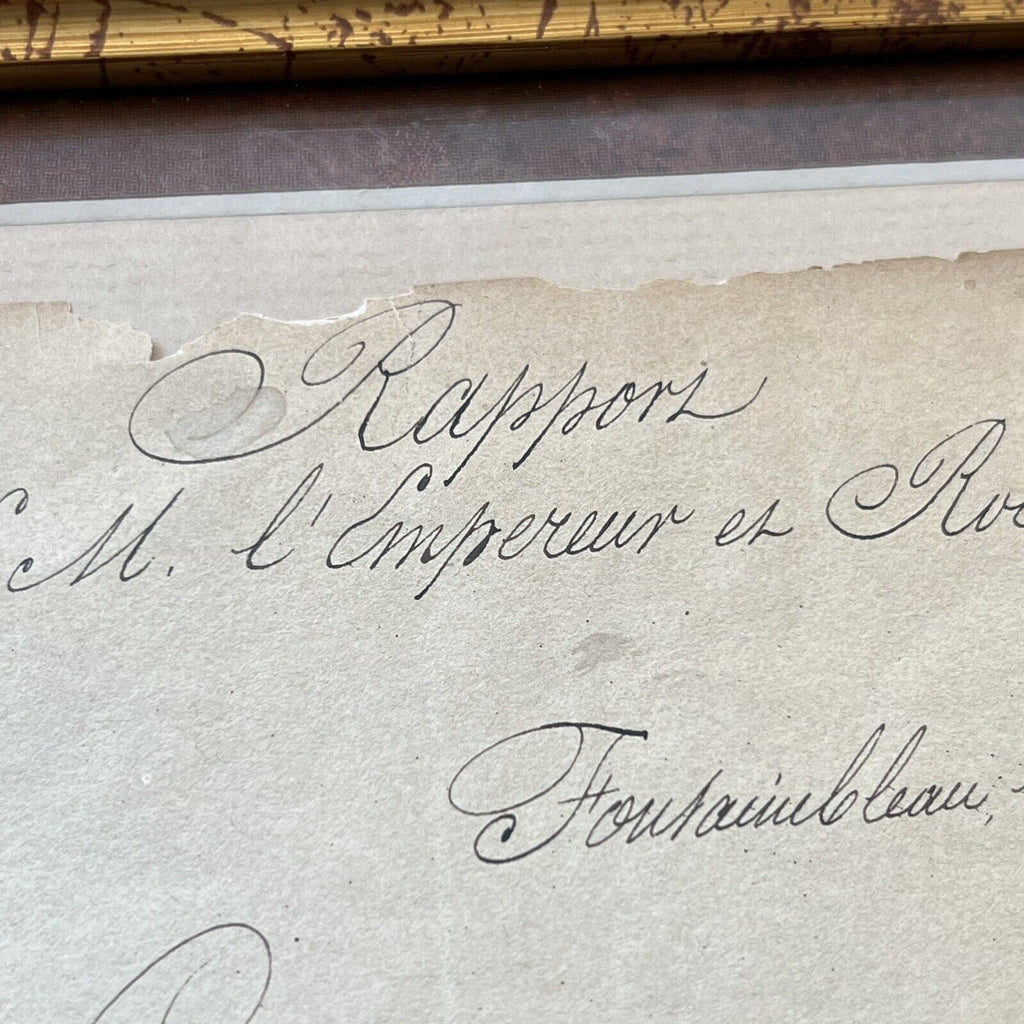 Rapport
M. l'Empereur et Ro
Fontainebleau,